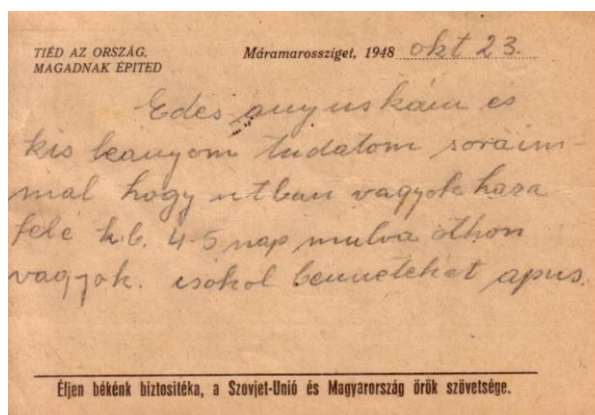 TIÉD AZ ORSZÁG,
MAGADNAK ÉPITED
Máramarossziget, 1948 okt 23.
Edes anyuskám és
kis leanyom tudatom soraim-
mal hogy utban vagyok haza
felé k.b. 4-5 nap mulva othon
vagyok. csokol benneteket apus.
Éljen békénk biztositéka, a Szovjet-Unió és Magyarország örök szövetsége.